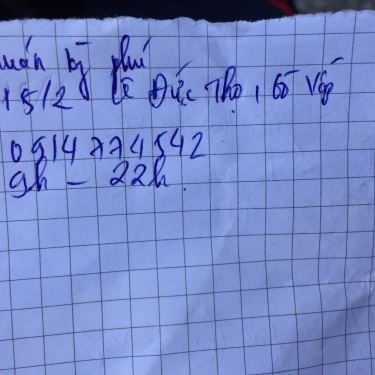 mán kỳ phú
15/2 Lê Đức Thọ, Gò Vấp
0914774542
9h - 22h.